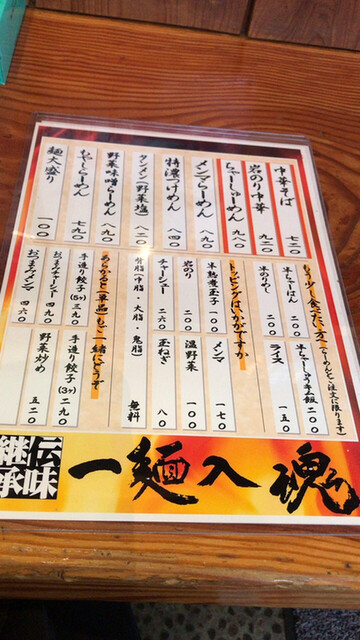 中華そば 七三〇
岩のり中華 九二〇
ちゃーしゅーめん 九八〇
メンマらーめん 八九〇
特濃つけめん 八四〇
タンメン(野菜塩) 八二〇
野菜味噌らーめん 八九〇
もやしらーめん 七九〇
麺大盛り 一〇〇
もう少し食べたい方へ(らーめんをご注文に限ります)
半ちゃーはん 二五〇
半のりめし
半ちゃーしゅー丼飯 二〇〇
ライス 一五〇
トッピングはいかがですか
半熟煮玉子 一〇〇
岩のり
チャーシュー 二六〇
メンマ 一七〇
温野菜 一〇〇
玉ねぎ 八〇
背脂・中脂・大脂・鬼脂 無料
あらかると(単品)も一緒にどうぞ
手造り餃子(5ヶ) 三九〇
おつまみチャーシュー 四九〇
おつまみメンマ 四六〇
手造り餃子(3ヶ) 二九〇
野菜炒め 五二〇
伝味
継承
一麺入魂